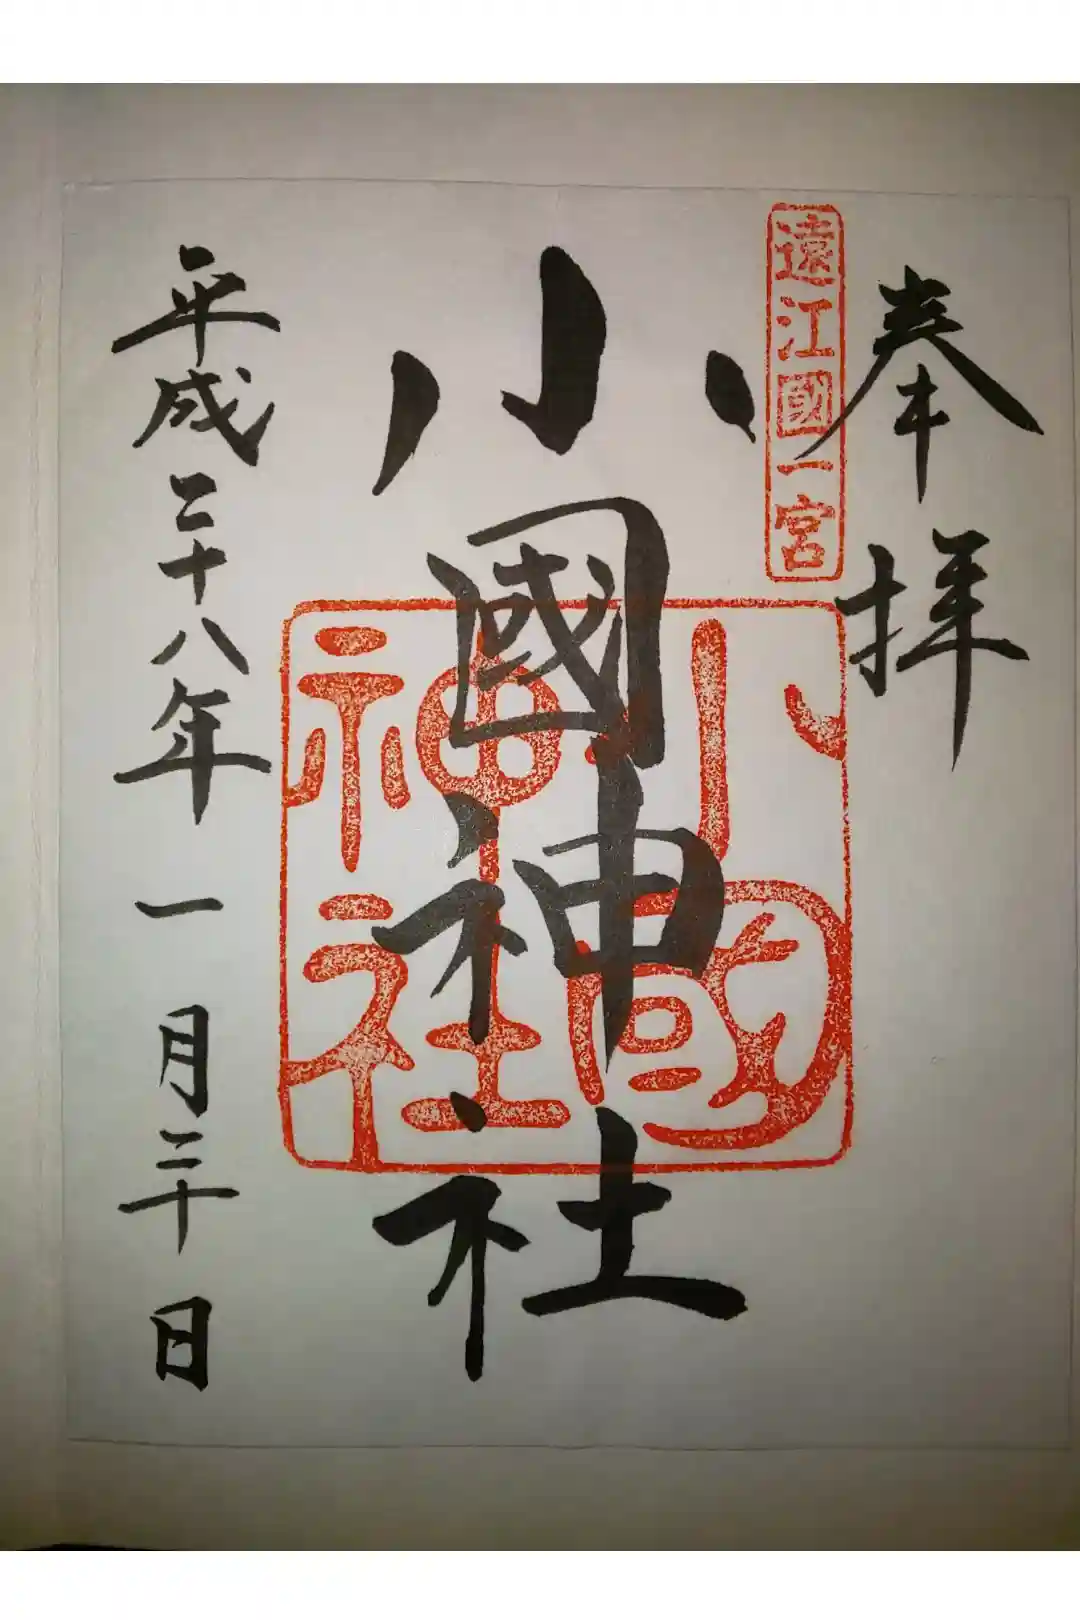 奉拝
遠江國一宮
小國神社
小國
神社
平成二十八年一月二十日